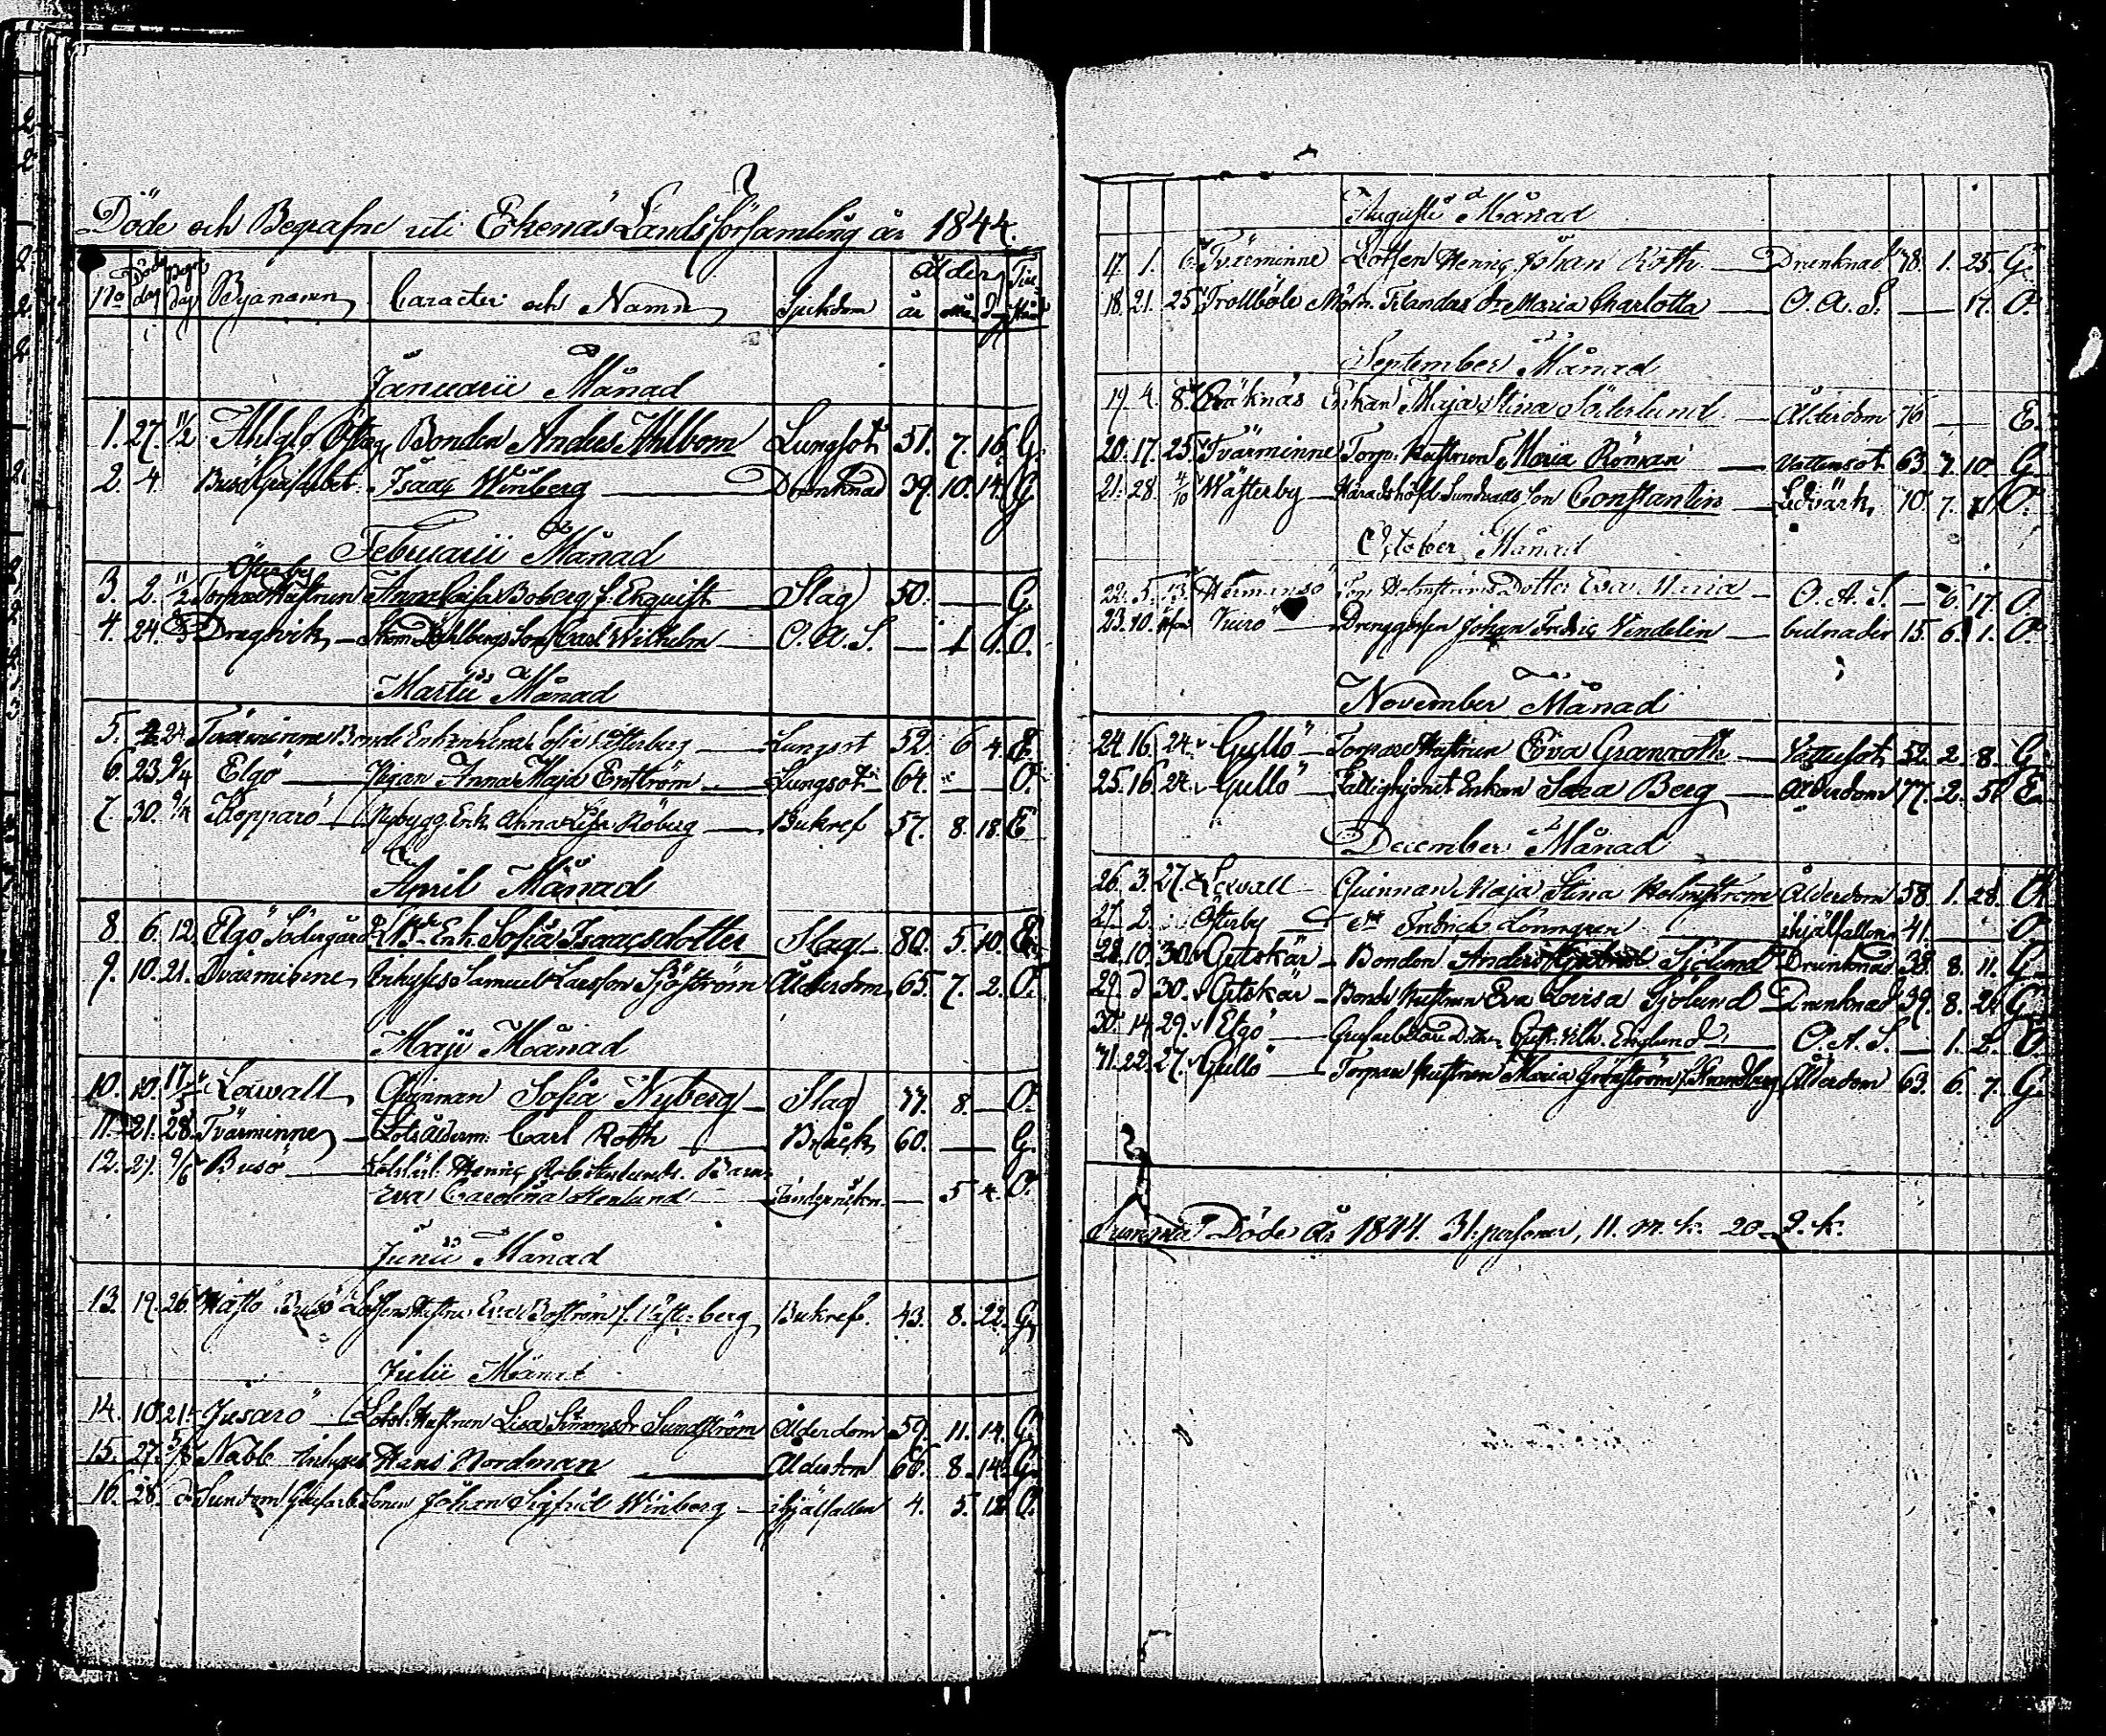 Döde och Begrafne uti Ekenäs Landsförsamling år 1844.
No Döds dag Begr. dag Byanamn Caracter och Namn Sjukdom Ålder år mån. d. Tilstånd
Januarii Månad
1. 27. 11/2 Bonden Anders Ahlbom Lungsot 51. 7. 16. G.
2. 4. Busö Isaac Winberg Drunknad 39. 10. 14. G
Februarii Månad
Österby
3. 2. 11/2 Torpare Hustrun Anna Caisa Boberg f. Enquist Slag 50. G.
4. 24. Dragsvik Dahlbergs Son Carl Wilhelm O. A. S. 1 9. O.
Martii Månad
5. 24. Tvärminne Bonde Enkan Lena Sofia Österberg Lungsot 52. 6 4. E.
6. 23 9/4 Elgö Pigan Anna Maja Enström Lungsot 64. O.
7. 30. 9/4 Kopparö Nybygg. Enk. Anna Lisa Roberg Bukref 57. 8. 18. E
April Månad
8. 6. 12. Elgö Södergård Enk. Sofia Isaacsdotter Slag 80. 5. 10. E.
9. 10. 21. Tvärminne Inhyses Samuel Larsson Sjöström Ålderdom 65. 7. 2. O.
Maji Månad
10. 10. 17/5 Lexvall Qvinnan Sofia Nyberg Slag 77. 8. O.
11. 21. 28. Tvärminne Lots Ålderm. Carl Roth Bråck 60. G.
12. 29. 9/6 Busö Henric
Eva Carolina Stenlund 5 4. O.
Junii Månad
13. 19. 26. Hästö Busö Lotsens Hustru Eva Boström f. Österberg Bukref. 43. 8. 22. G
Julii Månad
14. 10. 21. Jusarö Lotsl. Hustrun Lisa Simonsdr Sundström Ålderdom 59. 11. 14. G.
15. 27. 5/8 Nabb Inhyses Hans Nordman Ålderdom 66. 8. 14. G.
16. 28. do Grufarb. Sonen Johan Sigfrid Winberg ihjälfallen 4. 5. 12. O.
Augusti Månad
17. 1. 6. Tvärminne Lotsen Henric Johan Roth Drunknad 48. 1. 25. G.
18. 21. 25. Trollböle Mjöln. Filandas Dr Maria Charlotta O. A. S. 17. O.
September Månad
19. 4. 8. Enkan Maja Stina Söderlund Ålderdom 76 E.
20. 17. 25. Tvärminne Torp. Hustrun Maria Röman Vattusot 63. 7. 10. G
21. 28. 4/10 Wästerby Häradshöfd. Sundvalls Son Constantin Ledvärk 10. 7. O.
October Månad
22. 5. 13. Hermansö Torp. Holmströms Dotter Eva Maria O. A. S. 6. 17. O.
23. 10. Drenggossen Johan Fredric Vendelin bulnader 15. 6. 1. O.
November Månad
24. 16. 24. Gullö Torpare Hustrun Eva Granroth Vattusot 52. 2. 8. G.
25. 16. 24. Gullö Fattighjonet Enkan Sara Berg Ålderdom 77. 2. 5. E.
December Månad
26. 3. 27. Lexvall Qvinnan Maja Stina Holmström Ålderdom 58. 1. 28. O.
27. 2. Österby Fredrica Lönngren ihjälfallen 41. O
28. 10. 30. Getskär Bonden Anders Sjölund Drunknad 38. 8. 11. G.
29. d 30. Getskär Bonde Hustrun Eva Lovisa Sjölund Drunknad 39. 8. 21 G
30. 14. 29. Elgö Grufarbetare Englund O. A. S. 1. 2. O.
31. 22. 27. Gullö Torpare Hustrun Maria Grönström f. Strandberg Ålderdom 63. 6. 7. G.
Summa Döde År 1844. 31. personer, 11. m. k. 20 Q. k.